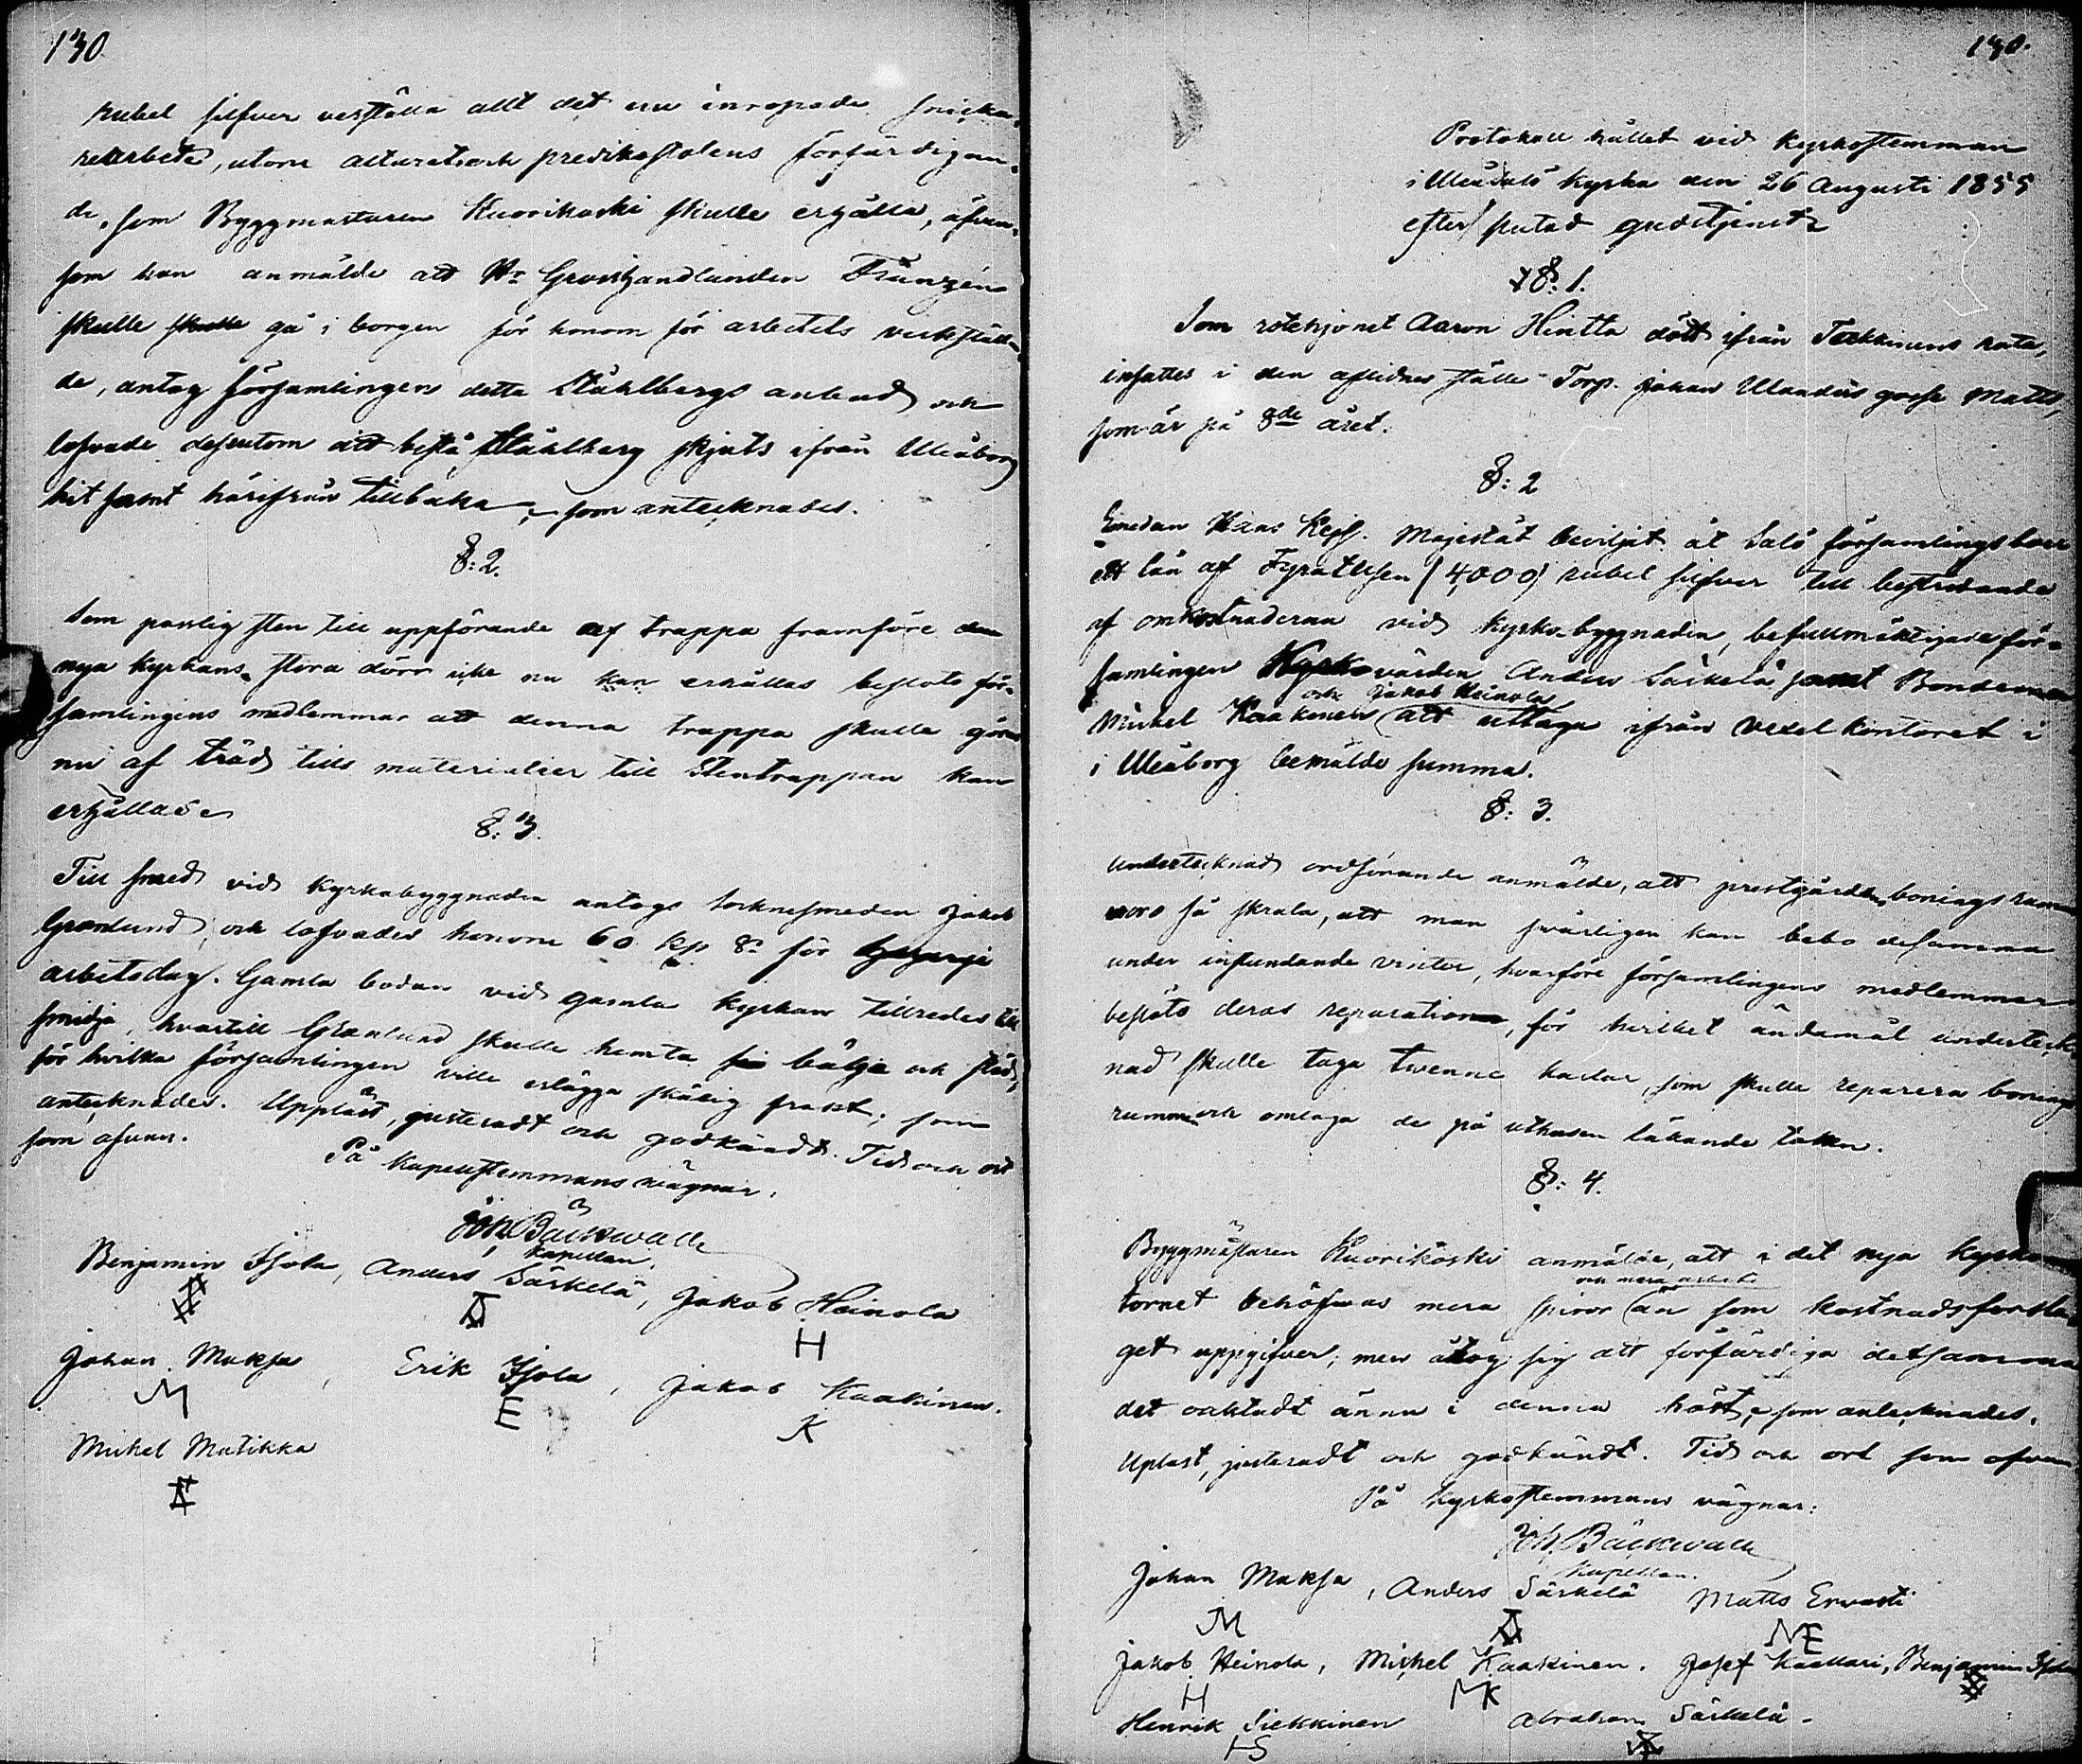 130.
rubel silfver verställa allt det nu inropade snicka-
rearbete, utom altaret och predikostolens förfärdigan-
de, som Byggmästaren Kuorikoski skulle erhålla, äfven-
som han anmälde att Hr Grosshandlanden Franzén
skulle skulle gå i borgen för honom för arbetets verkställ-
de, antog församlingens detta Ståhlbergs anbud och
lofvade dessutom att bestå Ståhlberg skjuts ifrån Uleåborg
hit samt härifrån tillbaka; som antecknades.
§: 2.
Som passlig sten till uppförande af trappa framföre den
nya kyrkans stora dörr icke nu kan erhållas beslöto för-
samlingens medlemmar att denna trappa skulle göras
nu af träd tills materialier till Stentrappan kan
erhållas.
§: 3.
Till smed vid kyrkobyggnaden antogs socknesmeden Jakob
Grönlund, och lofvades honom 60 kp. Sr för
arbetsdag. Gamla boden vid gamla kyrkan tillredes till
smidja, hvartill Grönlund skulle hemta bälja och städ,
för hvilka församlingen ville erlägga skälig frakt; som
antecknades. Uppläst, justeradt och godkändt. Tid och ort
som ofvan.
På Kapellstemmans vägnar:
Joh. Bäckwall
Kapellan.
Benjamin Isola, Anders Särkelä, Jakob Heinola
H
Johan Maksa, Erik Isola, Jakob Kaakinen.
M E K
Mickel Matikka
130.
Protokoll hållet vid Kyrkostemman
i Uleåsalo Kyrka den 26 Augusti 1855
efter slutad gudstjenst
§: 1.
Som rotehjonet Aaron Hintta dött ifrån Tackinens rote,
insattes i den aflidnes ställe Torp. Johan Ulanders gosse Matts,
som är på 8de året.
§: 2
Emedan Hans Kejs. Majestät beviljat åt Salo församlingsboer
ett lån af Fyratusen (4,000) rubel silfver till bestridande
af omkostnaderna vid kyrko-byggnaden, befullmäktigade för-
samlingen Kyrkovärden Anders Särkelä samt Bondeman
och Jakob Heinola
Mickel Kaakinen att uttaga ifrån Vexelkontoret i
i Uleåborg bemälde summa.
§: 3.
Undertecknad ordförande anmälde, att prestgårdens boningsrum
voro så skrala, att man svårligen kan bebo desamma
under instundande vinter, hvarföre församlingens medlemmar
beslöto deras reparation, för hvilket ändamål underteck-
nad skulle taga tvenne karlar, som skulle reparera bonings
rummen och omlaga de på uthusen läkande taken.
§: 4.
Byggmästaren Kuorikoski anmälde, att i det nya kyrko-
och mera arbete
tornet behöfves mera spiror än som kostnadsförsla-
get uppgifver; men åtog sig att förfärdiga detsamma
det oaktadt ännu i denna höst; som antecknades.
Upläst, justeradt och godkändt. Tid och ort som ofvan
På Kyrkostemmans vägnar:
Joh. Bäckwall
Kapellan.
Johan Maksa, Anders Särkelä Matts Ervasti
M ME
Jakob Heinola, Mickel Kaakinen. Josef Kaakkari, Benjamin Isola
H MK
Henrik Siekkinen Abraham Särkelä.
HS